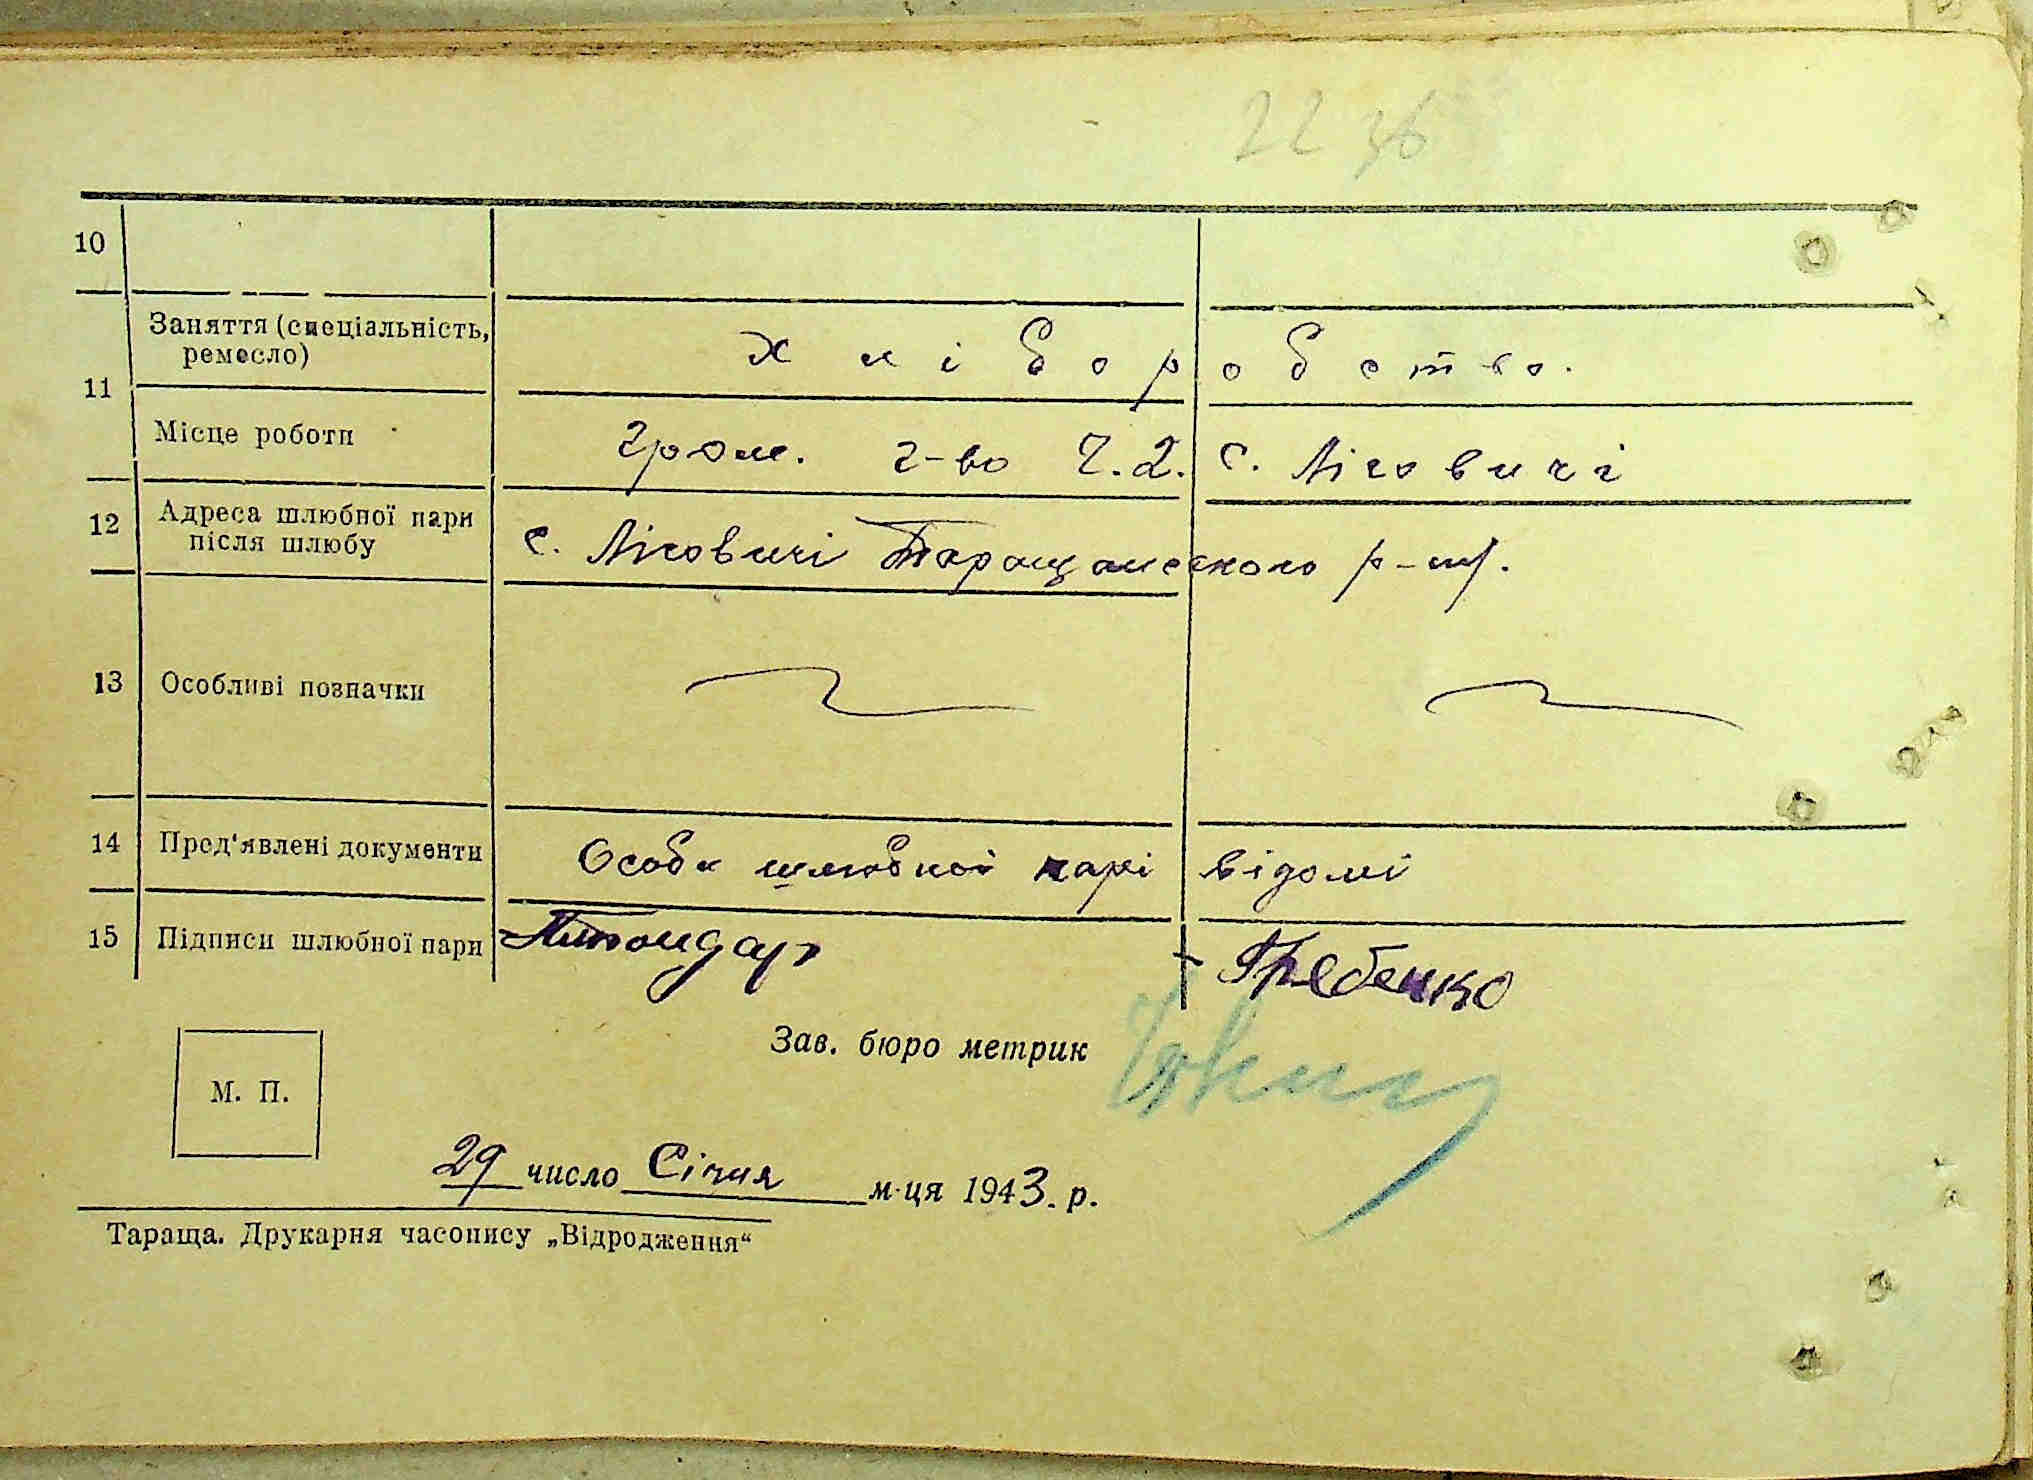 22 36
10
11 Заняття (спеціальність, ремесло) Хліборобство.
Місце роботи гром. г-во Ч.2. с. Лісовичі
12 Адреса шлюбної пари після шлюбу с. Лісовичі Таращанського р-ну.
13 Особливі позначки
14 Пред'явлені документи Особи шлюбної парі відомі
15 Підписи шлюбної пари Гребенко
Зав. бюро метрик
М. П.
29 число Січня м-ця 1943. р.
Тараща. Друкарня часопису „Відродження“